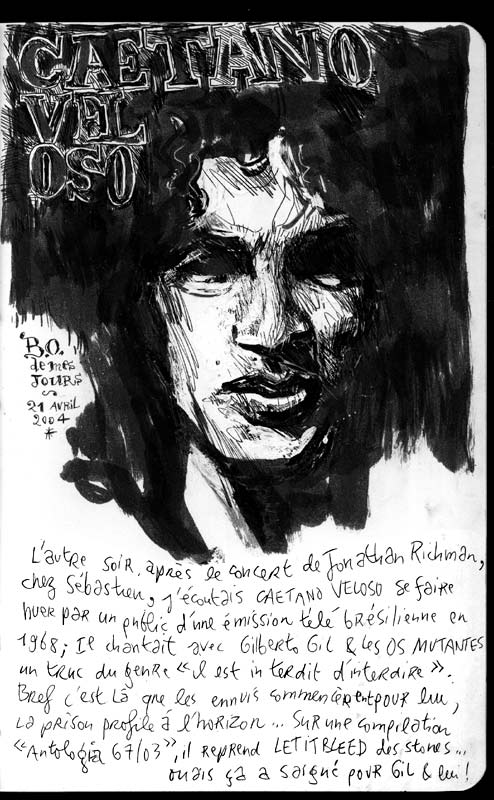 CAETANO
VEL
OSO
B.O.
de mes
JOURS
~
21 AVRIL
2004
*
L'autre soir, après le concert de Jonathan Richman,
chez Sébastien, j'écoutais CAETANO VELOSO se faire
huer par un public d'une émission télé brésilienne en
1968; Il chantait avec Gilberto Gil & les OS MUTANTES
un truc du genre «il est interdit d'interdire».
Bref c'est là que les ennuis commencèrent pour lui,
la prison profile à l'horizon... Sur une compilation
«Antologia 67/03», il reprend LET IT BLEED des stones...
ouais ça a saigné pour Gil & lui!